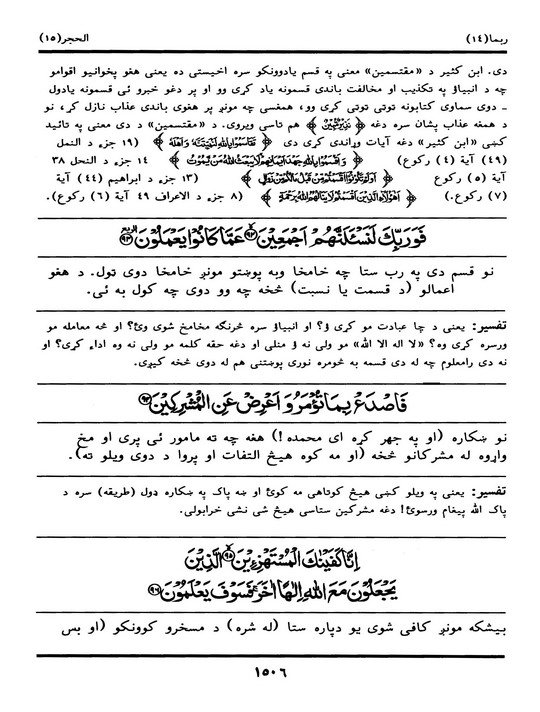 ربما(١٤) الحجر(١٥)
دی. ابن کثیر د «مقتسمین» معنی په قسم یادوونکو سره اخیستی ده یعنی هغو پخوانیو اقوامو
چه د انبیاؤ په تکذیب او مخالفت باندی قسمونه یاد کړی وو او پر دغو خبرو ئی قسمونه یادول
ـ دوی سماوی کتابونه توتی توتی کړی وو، همغسی چه مونږ پر هغوی باندی عذاب نازل کړ، نو
د همغه عذاب پشان سره دغه ﴿ ﴾ هم تاسی ویروی. د «مقتسمین» د دی معنی په تائید
کښی «ابن کثیر» دغه آیات وړاندی کړی دی ﴿ تَقَاسَمُوا بِاللَّهِ لَنُبَيِّتَنَّهُ وَأَهْلَهُ ﴾ (١٩ جزء د النمل
(٤٩) آیة (٤) رکوع) ﴿ وَأَقْسَمُوا بِاللَّهِ جَهْدَ أَيْمَانِهِمْ لَا يَبْعَثُ اللَّهُ مَنْ يَمُوتُ ﴾ ١٤ جزء د النحل ٣٨
آیة (٥) رکوع ﴿ أَوَلَمْ تَكُونُوا أَقْسَمْتُمْ مِنْ قَبْلُ مَا لَكُمْ مِنْ زَوَالٍ ﴾ (١٣ جزء د ابراهیم (٤٤) آیة
(٧) رکوع.) ﴿ أَهَؤُلَاءِ الَّذِينَ أَقْسَمْتُمْ لَا يَنَالُهُمُ اللَّهُ بِرَحْمَةٍ ﴾ (٨ جزء د الاعراف ٤٩ آیة (٦) رکوع).
فَوَرَبِّكَ لَنَسْـَٔلَنَّهُمْ اَجْمَعِيْنَ ﴿٩٢﴾ عَمَّا كَانُوْا يَعْمَلُوْنَ ﴿٩٣﴾
نو قسم دی په رب ستا چه خامخا وبه پوښتو مونږ خامخا دوی ټول. د هغو
اعمالو (د قسمت یا نسبت) څخه چه وو دوی چه کول به ئی.
تفسیر: یعنی د چا عبادت مو کړی ؤ؟ او انبیاؤ سره څرنګه مخامخ شوی وئ؟ او څه معامله مو
ورسره کړی وه؟ «لا اله الا الله» مو ولی نه ؤ منلی او دغه حقه کلمه مو ولی نه وه اداء کړی؟ او
نه دی رامعلوم چه له دی قسمه به څومره نوری پوښتنی هم له دوی څخه کیږی.
فَاصْدَعْ بِمَا تُؤْمَرُ وَ اَعْرِضْ عَنِ الْمُشْرِكِيْنَ ﴿٩٤﴾
نو ښکاره (او په جهر کړه ای محمده!) هغه چه ته مامور ئی پری او مخ
واړوه له مشرکانو څخه (او مه کوه هیڅ التفات او پروا د دوی ویلو ته).
تفسیر: یعنی په ویلو کښی هیڅ کوتاهی مه کوئ او ښه پاک په ښکاره ډول (طریقه) سره د
پاک الله پیغام ورسوئ! دغه مشرکین ستاسی هیڅ شی نشی خرابولی.
اِنَّا كَفَيْنٰكَ الْمُسْتَهْزِءِيْنَ ﴿٩٥﴾ الَّذِيْنَ
يَجْعَلُوْنَ مَعَ اللهِ اِلٰهًا اٰخَرَ فَسَوْفَ يَعْلَمُوْنَ ﴿٩٦﴾
بیشکه مونږ کافی شوی یو دپاره ستا (له شره) د مسخرو کوونکو (او بس
١٥٠٦